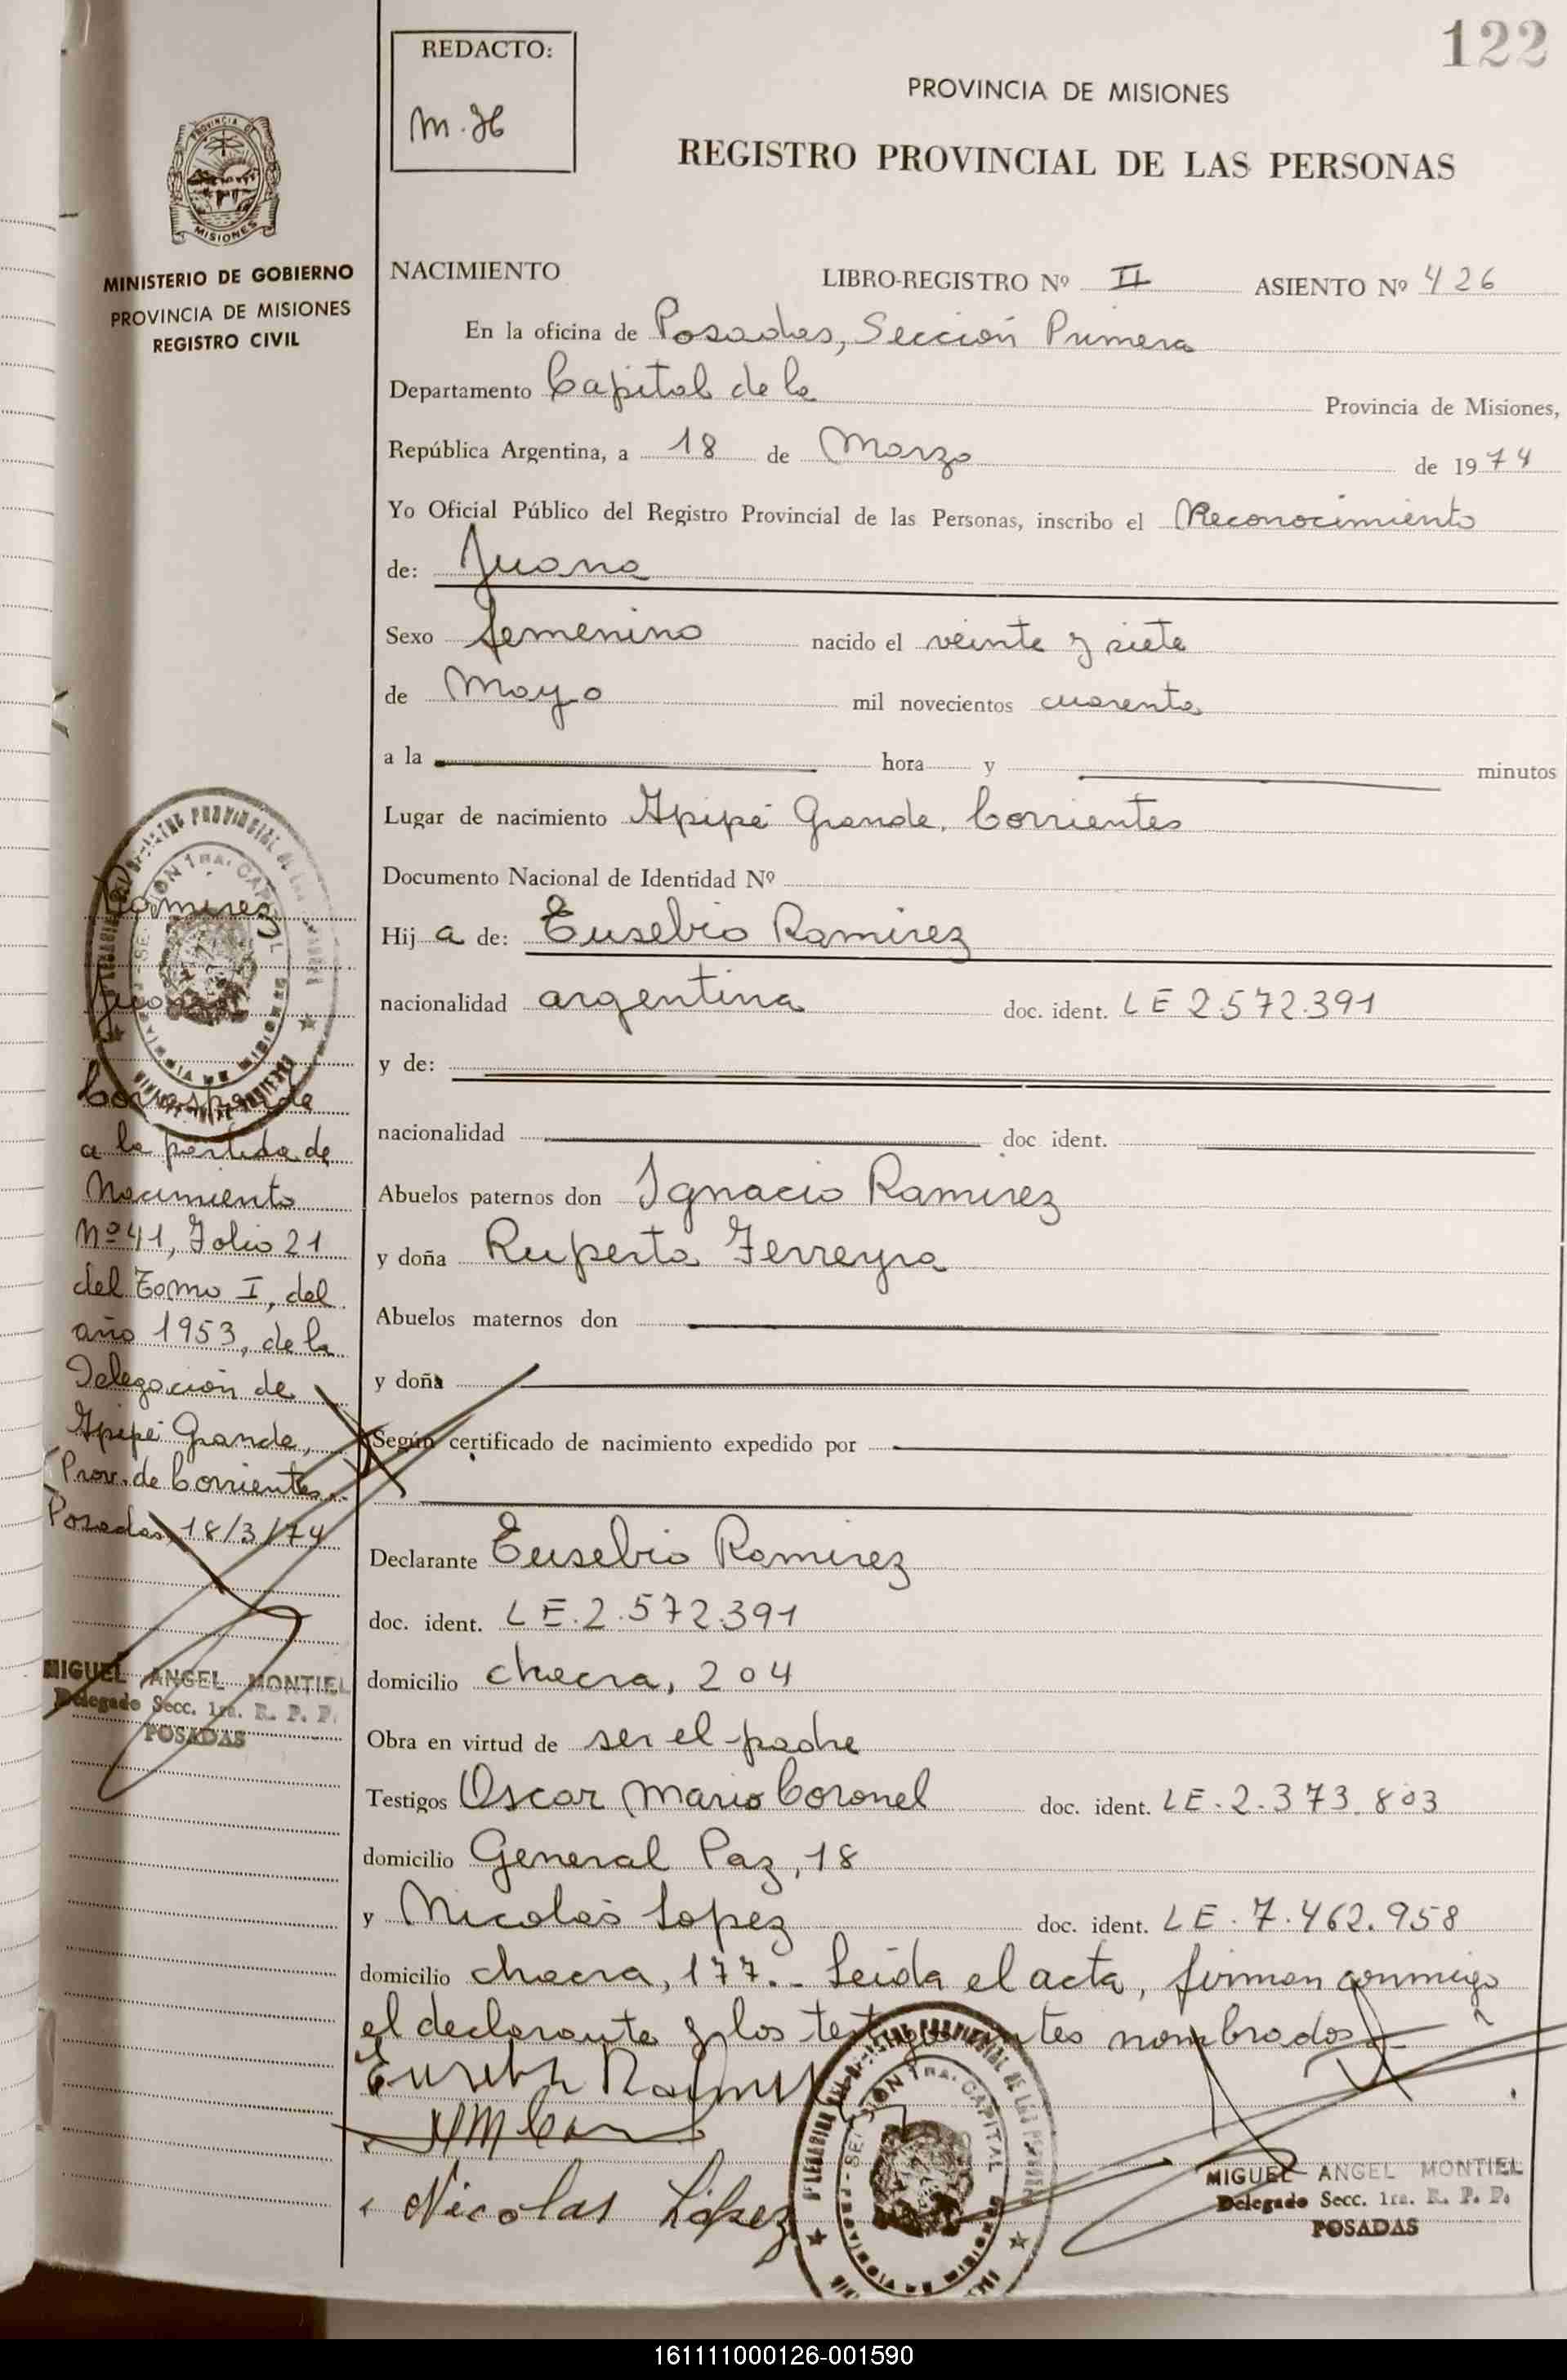 122
REDACTO:
M. H
PROVINCIA DE MISIONES
REGISTRO PROVINCIAL DE LAS PERSONAS
PROVINCIA DE
MISIONES
MINISTERIO DE GOBIERNO
PROVINCIA DE MISIONES
REGISTRO CIVIL
NACIMIENTO LIBRO-REGISTRO Nº II ASIENTO Nº 426
En la oficina de Posadas, Sección Primera
Departamento Capital de la Provincia de Misiones,
República Argentina, a 18 de Marzo de 1974
Yo Oficial Público del Registro Provincial de las Personas, inscribo el Reconocimiento
de: Juana
Sexo femenino nacido el veinte y siete
de Mayo mil novecientos cuarenta
a la hora y minutos
Lugar de nacimiento Apipé Grande, Corrientes
Documento Nacional de Identidad Nº
Hij a de: Eusebio Ramirez
nacionalidad argentina doc. ident. LE 2.572.391
y de:
nacionalidad doc. ident.
Abuelos paternos don Ignacio Ramirez
y doña Ruperta Ferreyra
Abuelos maternos don
y doña
Según certificado de nacimiento expedido por
Declarante Eusebio Ramirez
doc. ident. LE.2.572.391
domicilio chacra, 204
Obra en virtud de ser el padre
Testigos Oscar Mario Coronel doc. ident. LE.2.373.803
domicilio General Paz, 18
y Nicolás Lopez doc. ident. LE.7.462.958
domicilio chacra, 177.- Leida el acta, firman conmigo
el declarante y los testigos antes nombrados
Nicolas López
MIGUEL ANGEL MONTIEL
Delegado Secc. 1ra. R. P. P.
POSADAS
Ramirez
Juana
Corresponde
a la partida de
Nacimiento
Nº 41, Folio 21
del Tomo I, del
año 1953, de la
Delegación de
Apipé Grande,
Prov. de Corrientes.
Posadas, 18/3/74
MIGUEL ANGEL MONTIEL
Delegado Secc. 1ra. R. P. P.
POSADAS
161111000126-001590